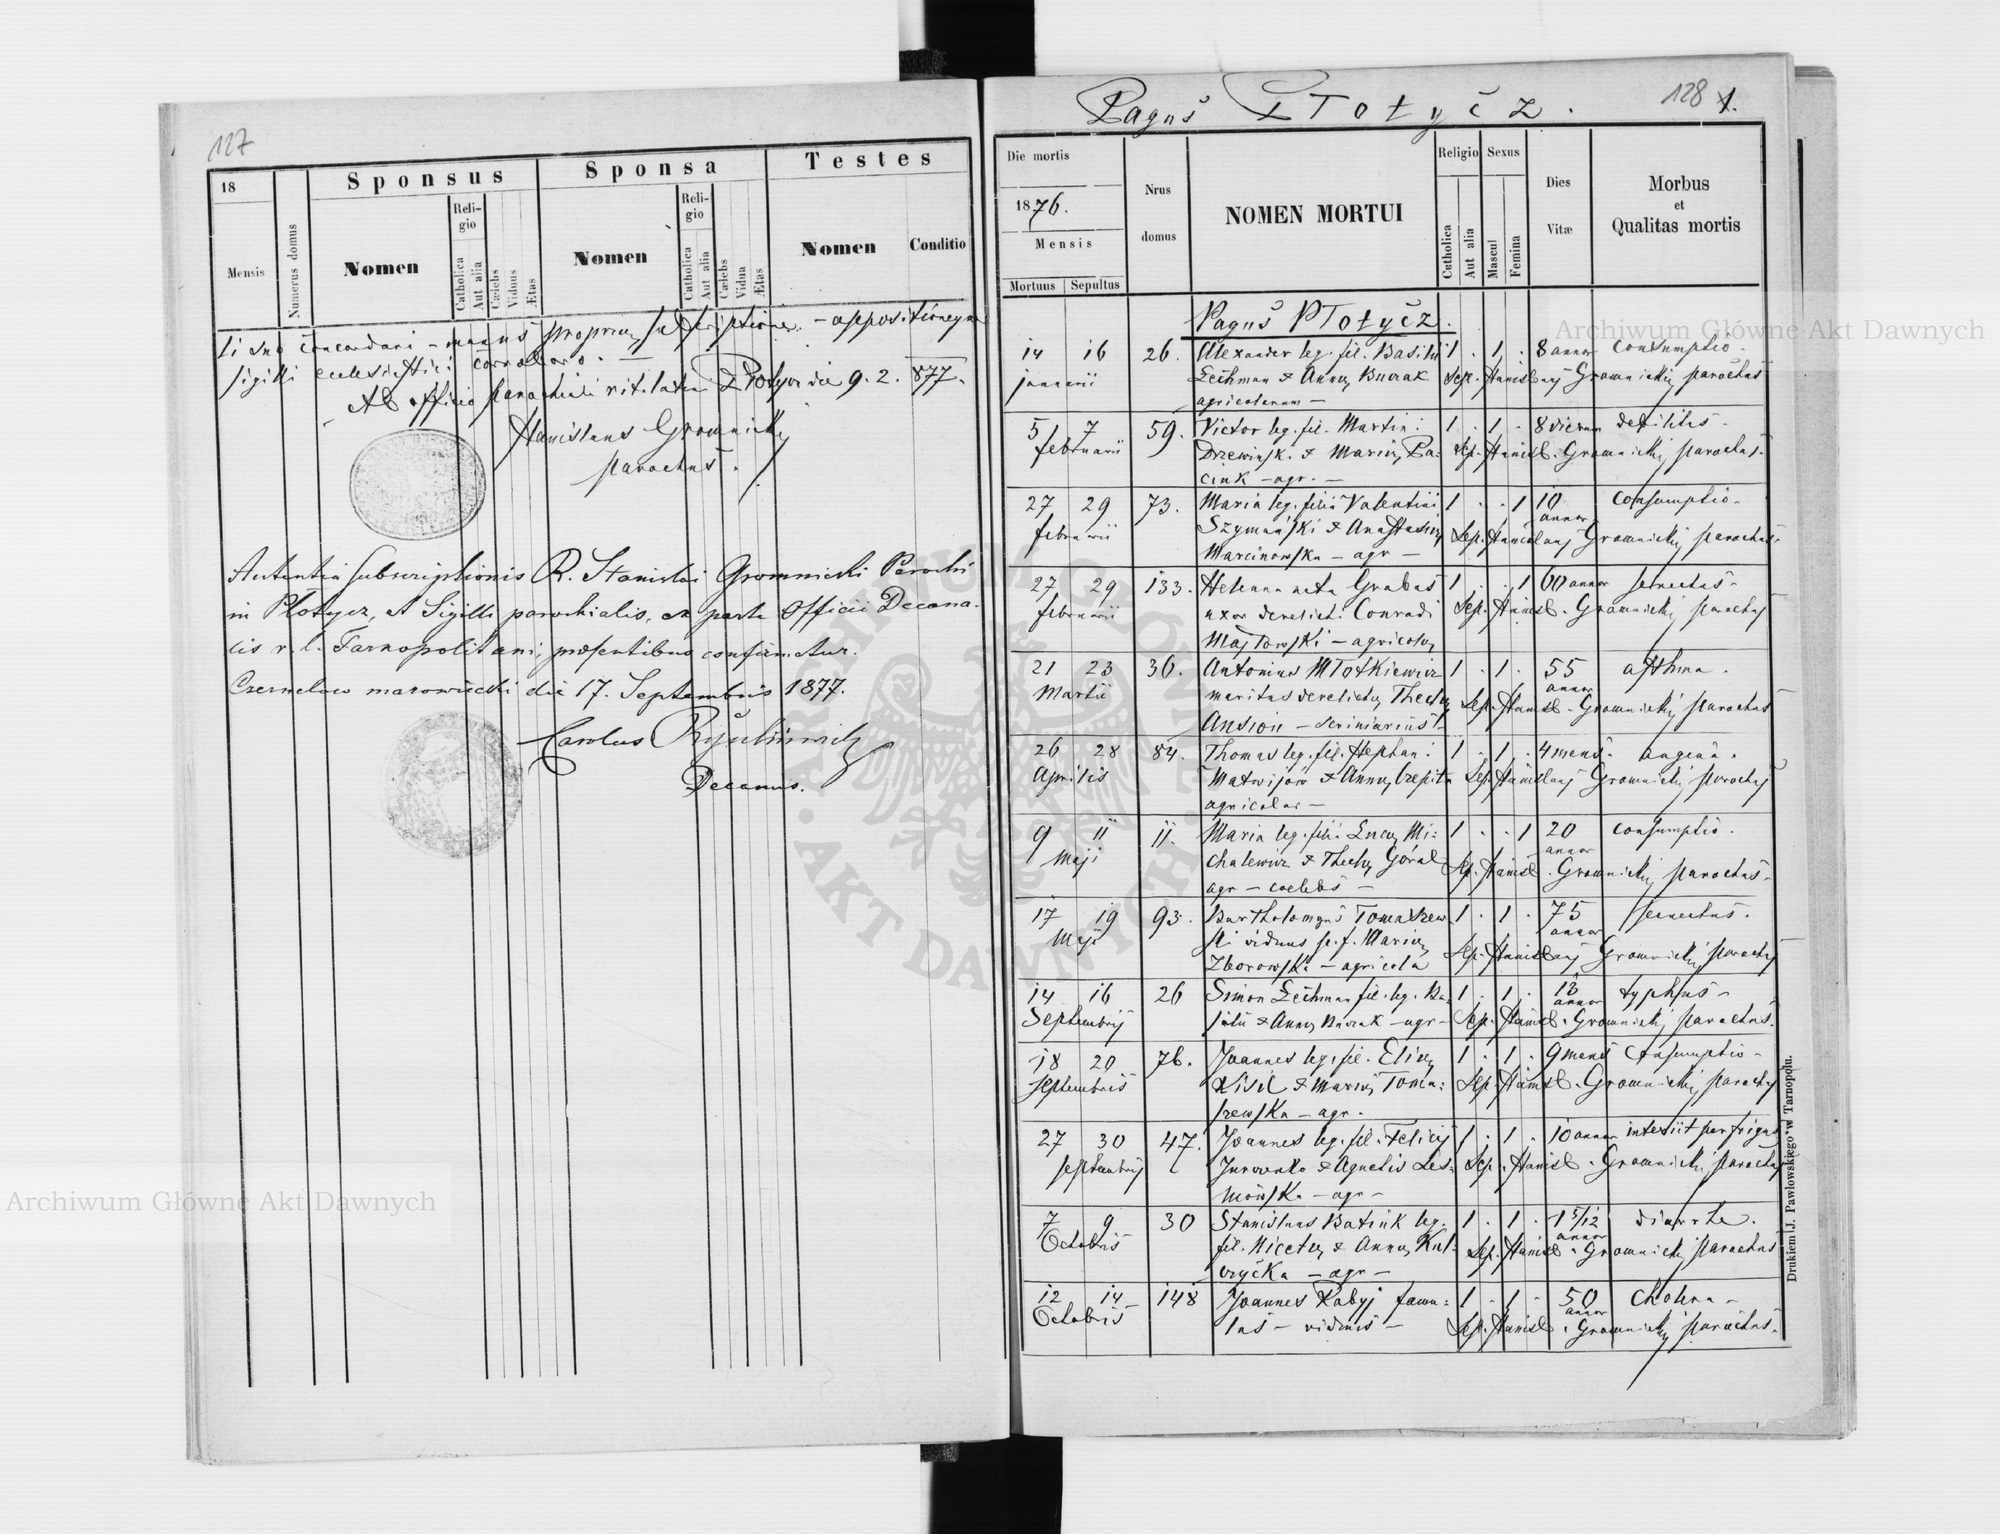 127
18
Sponsus
Sponsa
Testes
Mensis
Numerus domus
Nomen
Religio
Catholica
Aut alia
Cælebs
Viduus
Ætas
Nomen
Religio
Catholica
Aut alia
Cælebs
Vidua
Ætas
Nomen
Conditio
concordari - manus propriae subscriptione - appositioneque
sigilli ecclesiastici corroboro. —
Ab officio parochiali rit. lat. Płotycz die 9. 2. 877.
Stanislaus Gromnicki
parochus.
Autentia subscriptionis R. Stanislai Gromnicki Parochi
in Płotycz, et Sigilli parochialis, ex parte Officii Decana-
lis r. l. Tarnopolitani, præsentibus confirmatur.
Czernelow mazowiecki die 17. Septembris 1877.
Carolus
Decanus.
Pagus Płotycz.
128 1.
Die mortis
1876.
Mensis
Mortuus
Sepultus
Nrus domus
NOMEN MORTUI
Religio
Catholica
Aut alia
Sexus
Mascul
Femina
Dies Vitæ
Morbus et Qualitas mortis
Pagus Płotycz.
14 16 26. Alexander leg. fil. Basilii 1 . 1 . 8 annor consumptio.
januarii Lechman & Annae Burak Sep. Stanislaus Gromnicki parochus
agricolarum —
5 7 59. Victor leg. fil. Martini 1 . 1 . 8 dierum debilitas.
februarii Sep. Stanisl. Gromnicki parochus.
27 29 73. Maria leg. filia Valentini 1 . . 1 10 annor consumptio.
februarii Szymański & Anastasiae Sep. Stanislaus Gromnicki parochus.
Marcinowska — agr —
27 29 133. Helena nata Grabas 1 . . 1 60 annor senectus.
februarii uxor derelicti Conradi Sep. Stanisl. Gromnicki parochus
Majłowski — agricolae
21 23 30. Antonius Młotkiewicz 1 . 1 . 55 annor asthma.
Martii maritus derelictae Theclae Sep. Stanisl. Gromnicki parochus
26 28 84. Thomas leg. fil. Stephani 1 . 1 . 4 mens. angina.
Aprilis Matwijow & Annae Sep. Stanislaus Gromnicki parochus
agricolar —
9 11 11. Maria leg. filia Lucae Mi: 1 . . 1 20 annor consumptio.
Maji chalewicz & Theclae Góral Sep. Stanisl. Gromnicki parochus.
agr — coelebs —
17 19 93. Bartholomeus Tomaszew 1 . 1 . 75 annor senectus.
Maji ski viduus p. f. Mariae Sep. Stanislaus Gromnicki parochus
Zborowska — agricola
14 16 26 Simon Lechman fil. leg. Ba 1 . 1 . 13 annor typhus —
Septembris silii & Annae Burak — agr — Sep. Stanisl. Gromnicki parochus.
18 20 76. Joannes leg. fil. Eliae 1 . 1 . 9 mens consumptio —
Septembris Kisil & Mariae Toma: Sep. Stanisl. Gromnicki parochus
szewska — agr.
27 30 47. Joannes leg. fil. Felicis 1 . 1 . 10 annor interiit per frigus
Septembris & Agnetis Les: Sep. Stanisl. Gromnicki parochus
niowska — agr —
7 9 30 Stanislaus Batiuk leg. 1 . 1 . 1 5/12 annor diarrhe.
Octobris fil. Nicetae & Annae Sep. Stanisl. Gromnicki parochus
— agr —
12 14 148 Joannes Rabyj famu: 1 . 1 . 50 annor cholera —
Octobris lus — viduus — Sep. Stanisl. Gromnicki parochus.
Drukiem J. Pawłowskiego w Tarnopolu.
Archiwum Główne Akt Dawnych
Archiwum Główne Akt Dawnych
ARCHIWUM GŁÓWNE AKT DAWNYCH